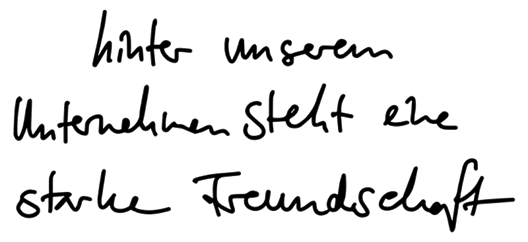 hinter unserem
Unternehmen steht eine
starke Freundschaft